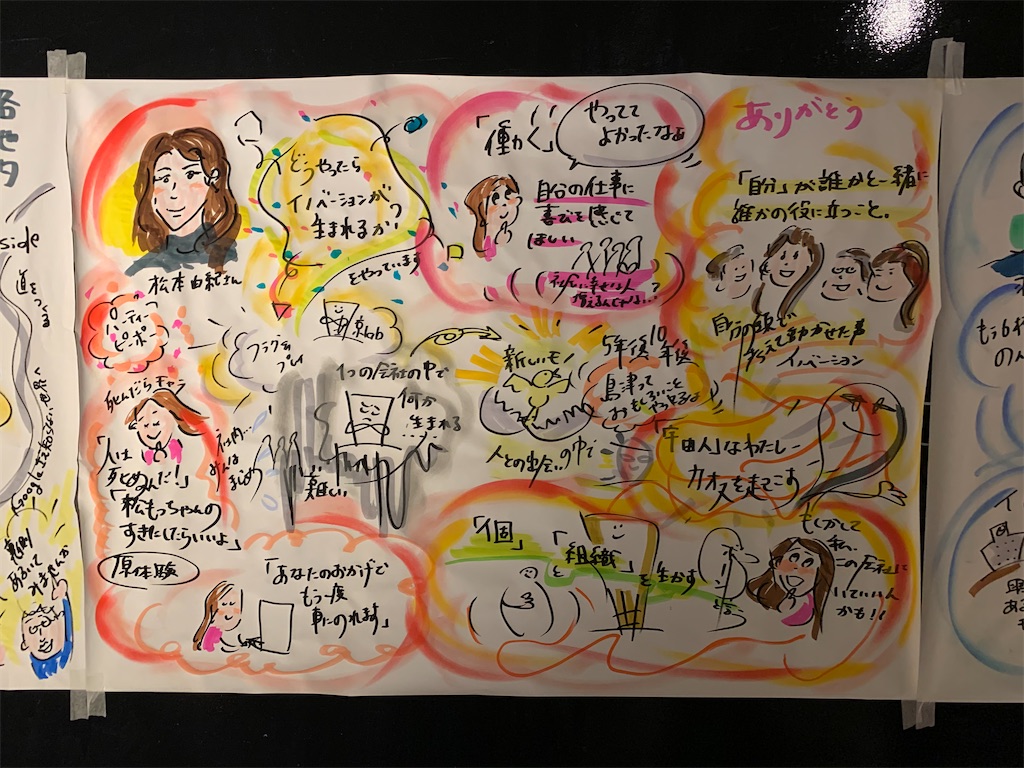 松本由紀さん
どうやったら
イノベーションが
生まれるか?
をやっています
「働く」
やってて
よかったなぁ
自分の仕事に
喜びを感じて
ほしい
ありがとう
「自分」が誰かと一緒に
誰かの役に立つこと。
自分の頭で
考えて動かせた事
イノベーション
パーティー
ピーポー
lab
1つの会社の中で
何か
生まれる
難しい
新しいモノ
人との出会いの中で
5年後10年後
島津って
おもしろいこと
やってるな
「宇宙人」なわたし
カオスを起こす
死んだらギャラ
「人は
死ぬねんに!」
「松もっちゃんの
すきにしたらいいよ」
社内…
みんな
まじめ
原体験
「あなたのおかげで
もう一度
車にのれます」
「個」
と「組織」を生かす
もしかして
私、
この会社に
いていい人
かも!!
side
道をつくる
裏側